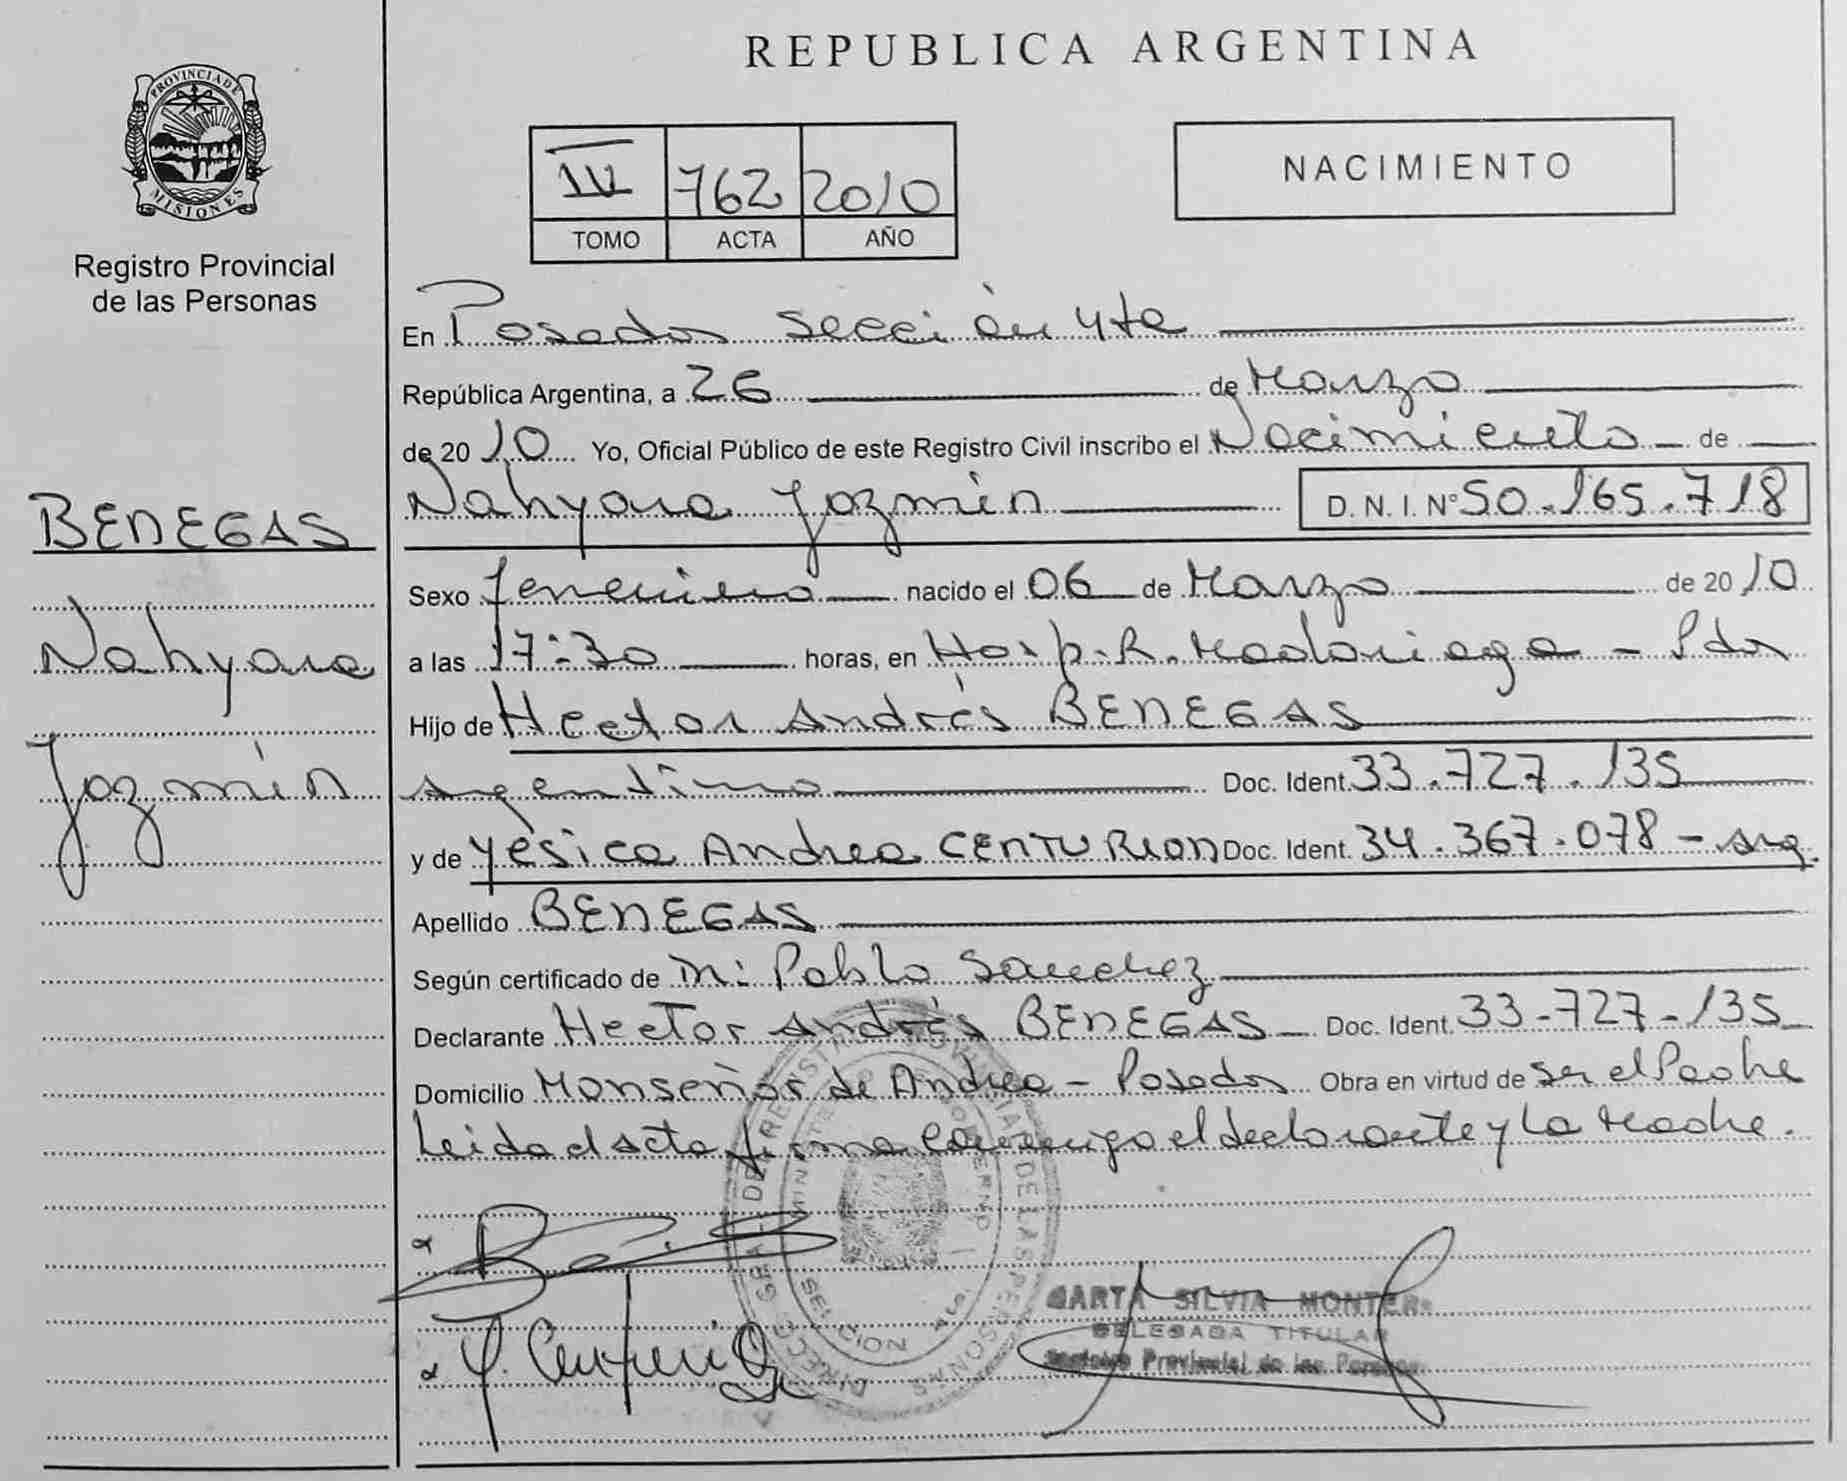 REPUBLICA ARGENTINA
PROVINCIA DE MISIONES
Registro Provincial
de las Personas
IV 762 2010
TOMO ACTA AÑO
NACIMIENTO
En Posadas sección 4ta
República Argentina, a 26 de Marzo
de 2010 Yo, Oficial Público de este Registro Civil inscribo el Nacimiento de
Nahyara Jazmín D. N. I. Nº 50.165.718
BENEGAS
Nahyara
Jazmín
Sexo femenino nacido el 06 de Marzo de 2010
a las 17:30 horas, en Hosp. R. Madariaga - Pdas
Hijo de Hector Andrés BENEGAS
argentino Doc. Ident. 33.727.135
y de Yesica Andrea CENTURION Doc. Ident. 34.367.078 - arg.
Apellido BENEGAS
Según certificado de Pablo Sanchez
Declarante Hector Andrés BENEGAS Doc. Ident. 33-727-135
Domicilio Monseñor de Andrea - Posadas Obra en virtud de ser el Padre
Leida el acta firma conmigo el declarante y la Madre.
SILVIA MONTER
DELEGADA TITULAR
Registro Provincial de las Personas